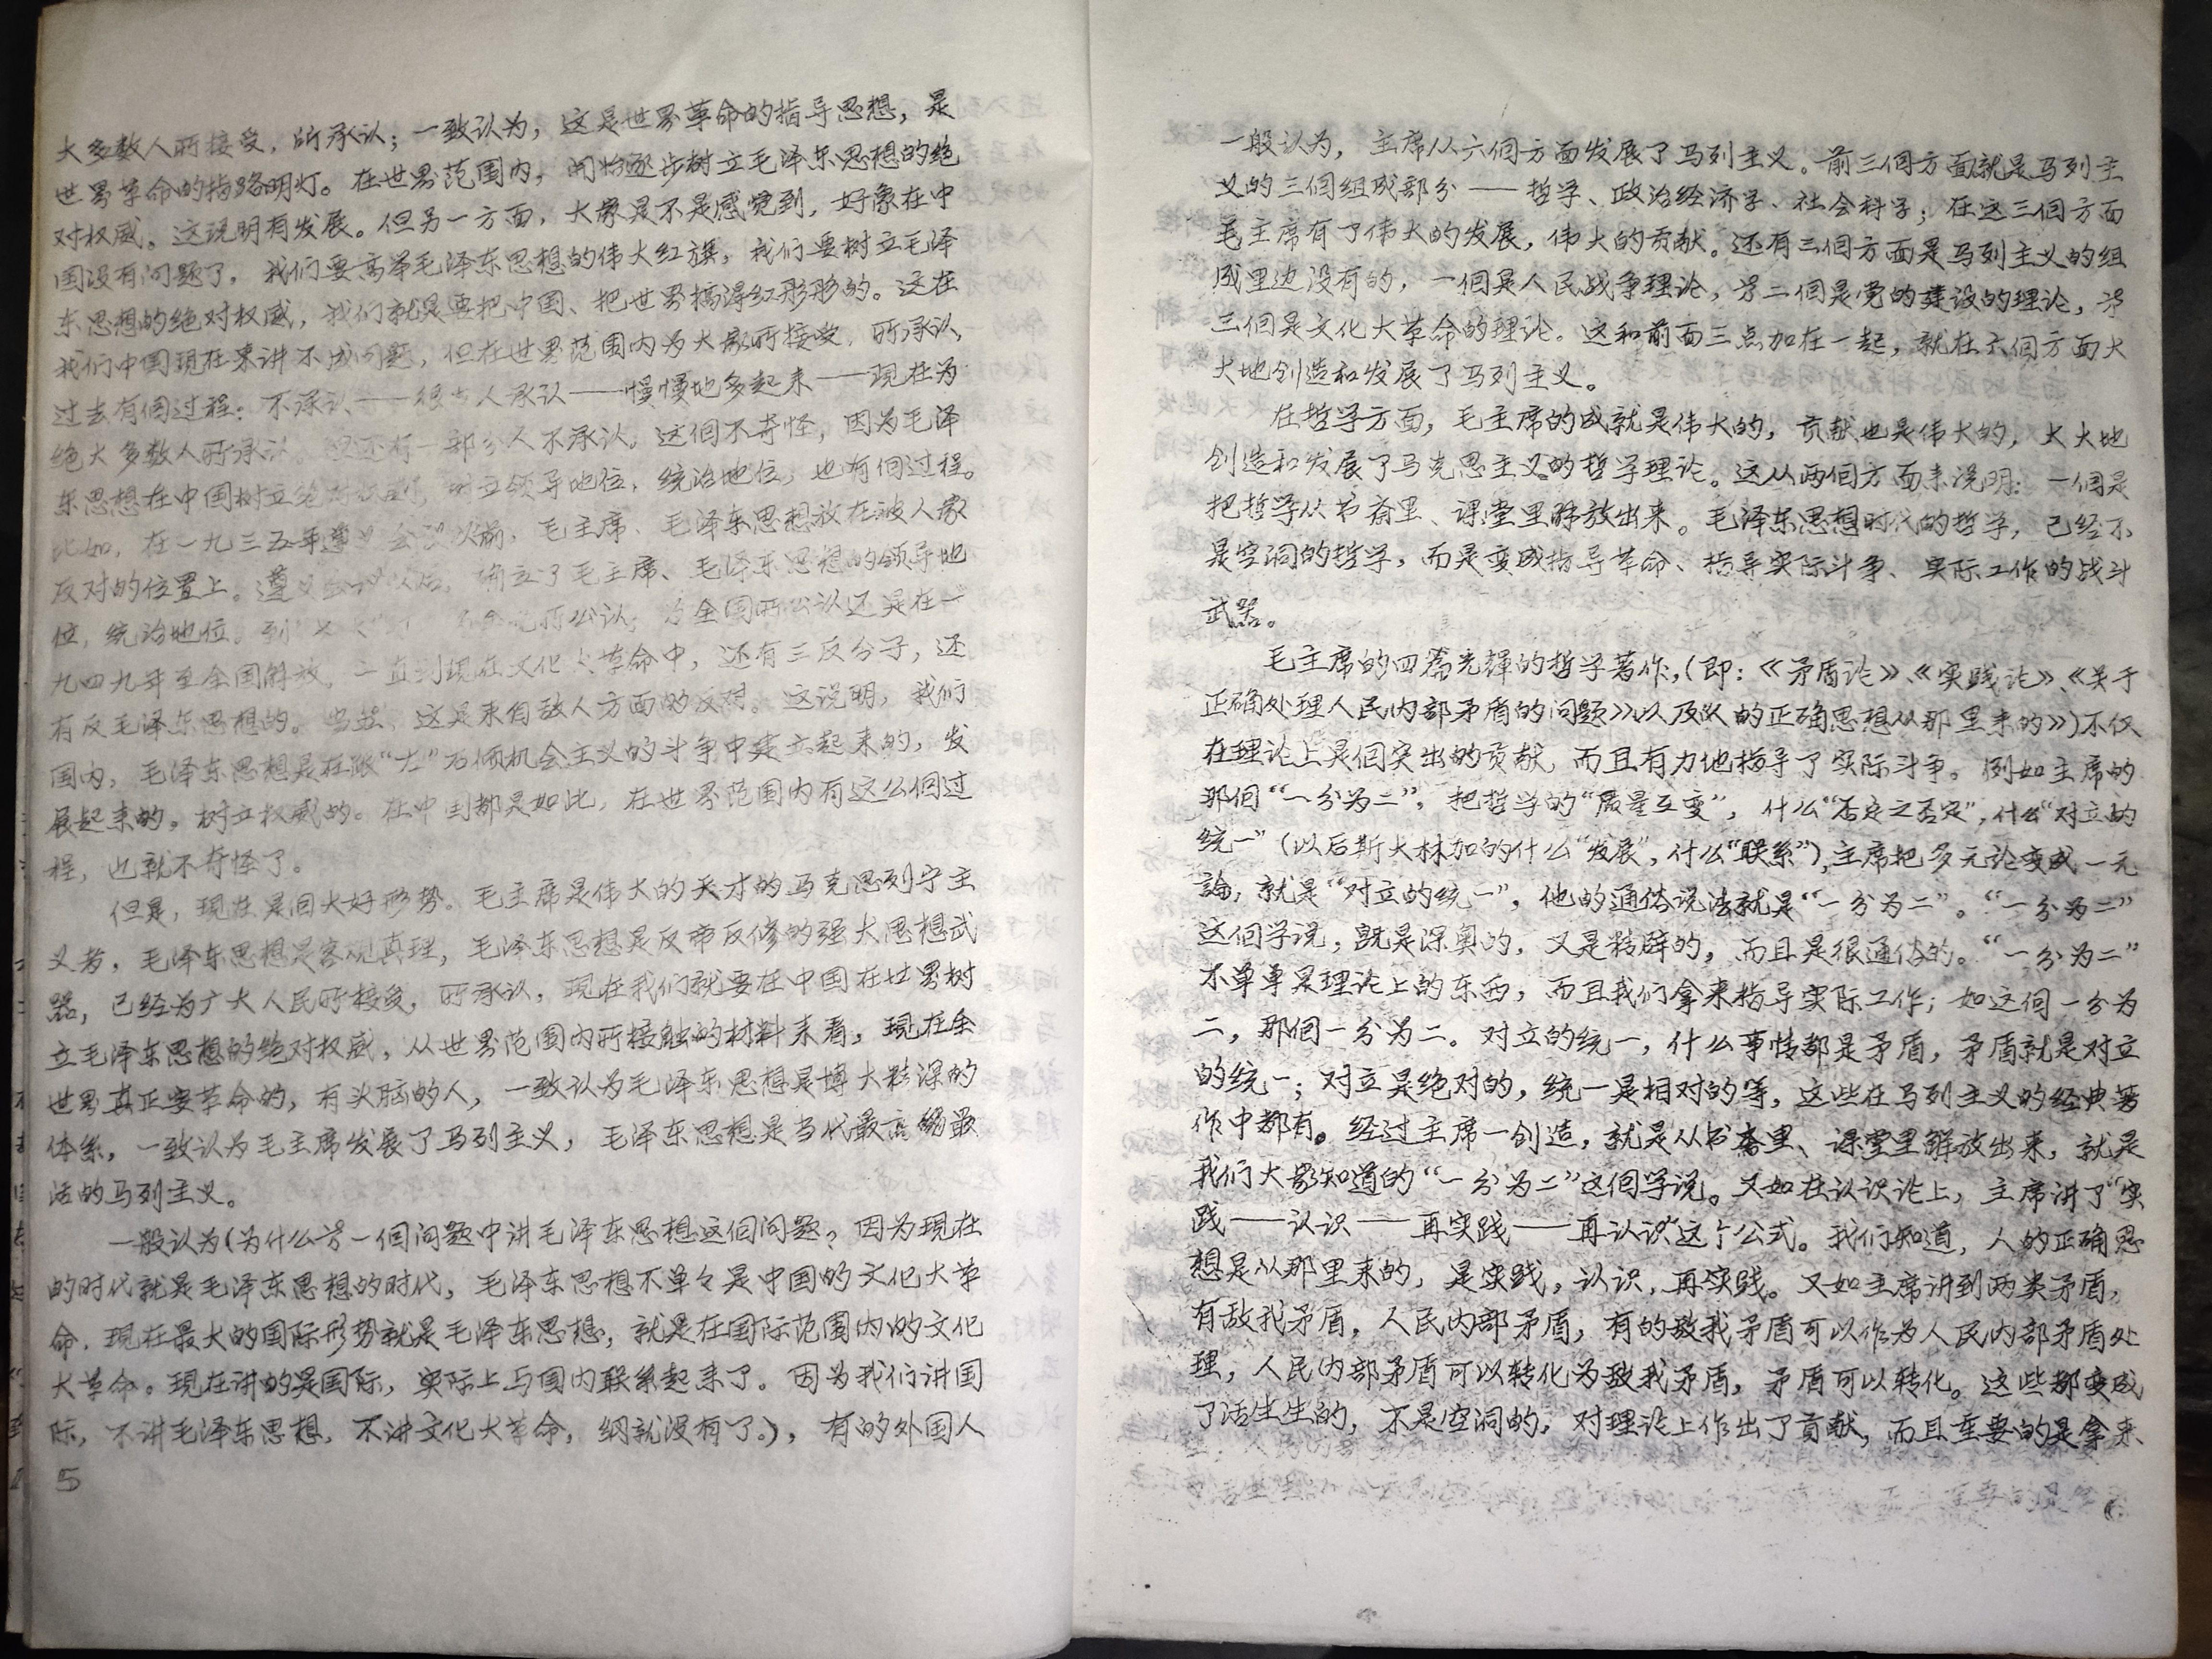 大多数人所接受，所承认；一致认为，这是世界革命的指导思想，是
世界革命的指路明灯。在世界范围内，開始逐步树立毛泽东思想的绝
对权威。这说明有发展。但另一方面，大家是不是感觉到，好象在中
国没有问题了，我们要高举毛泽东思想的伟大红旗，我们要树立毛泽
东思想的绝对权威，我们就是要把中国、把世界搞得红彤彤的。这在
我们中国现在来讲不成问题，但在世界范围内为大家所接受，所承认，
过去有個过程：不承认——很少人承认——慢慢地多起来——现在为
绝大多数人所承认。但还有一部分人不承认。这個不奇怪，因为毛泽
东思想在中国树立绝对权威，树立领导地位，统治地位，也有個过程。
比如，在一九三五年遵义会议以前，毛主席、毛泽东思想放在被人家
反对的位置上。遵义会议以后，确立了毛主席、毛泽东思想的领导地
位，统治地位。到 所公认；为全国所公认还是在一
九四九年至全国解放。一直到现在文化大革命中，还有三反分子，还
有反毛泽东思想的。当然，这是来自敌人方面的反对。这说明，我们
国内，毛泽东思想是在跟“左”右倾机会主义的斗争中建立起来的，发
展起来的，树立权威的。在中国都是如此，在世界范围内有这么個过
程，也就不奇怪了。
但是，现在是個大好形势。毛主席是伟大的天才的马克思列宁主
义者，毛泽东思想是客观真理，毛泽东思想是反帝反修的强大思想武
器，已经为广大人民所接受，所承认，现在我们就要在中国在世界树
立毛泽东思想的绝对权威，从世界范围内所接触的材料来看，现在全
世界真正要革命的，有头脑的人，一致认为毛泽东思想是博大精深的
体系，一致认为毛主席发展了马列主义，毛泽东思想是当代最高最
活的马列主义。
一般认为（为什么㐧一個问题中讲毛泽东思想这個问题？因为现在
的时代就是毛泽东思想的时代，毛泽东思想不单々是中国的文化大革
命，现在最大的国际形势就是毛泽东思想，就是在国际范围内的文化
大革命。现在讲的是国际，实际上与国内联系起来了。因为我们讲国
际，不讲毛泽东思想，不讲文化大革命，纲就没有了。），有的外国人
5
一般认为，主席从六個方面发展了马列主义。前三個方面就是马列主
义的三個组成部分——哲学、政治经济学、社会科学；在这三個方面
毛主席有了伟大的发展，伟大的贡献。还有三個方面是马列主义的组
成里边没有的，一個是人民战争理论，㐧二個是党的建设的理论，㐧
三個是文化大革命的理论。这和前面三点加在一起，就在六個方面大
大地创造和发展了马列主义。
在哲学方面，毛主席的成就是伟大的，贡献也是伟大的，大大地
创造和发展了马克思主义的哲学理论。这从两個方面来说明：一個是
把哲学从书斋里、课堂里解放出来。毛泽东思想时代的哲学，已经不
是空洞的哲学，而是变成指导革命、指导实际斗争、实际工作的战斗
武器。
毛主席的四篇光辉的哲学著作，（即：《矛盾论》、《实践论》、《关于
正确处理人民内部矛盾的问题》以及《人的正确思想从那里来的》）不仅
在理论上是個突出的贡献，而且有力地指导了实际斗争。例如主席的
那個“一分为二”，把哲学的“质量互变”，什么“否定之否定”，什么“对立的
统一”（以后斯大林加的什么“发展”，什么“联系”），主席把多元论变成一元
論，就是“对立的统一”，他的通俗说法就是“一分为二”。“一分为二”
这個学说，既是深奥的，又是精辟的，而且是很通俗的。“一分为二”
不单单是理论上的东西，而且我们拿来指导实际工作；如这個一分为
二，那個一分为二。对立的统一，什么事情都是矛盾，矛盾就是对立
的统一；对立是绝对的，统一是相对的等，这些在马列主义的经典著
作中都有。经过主席一创造，就是从书斋里、课堂里解放出来，就是
我们大家知道的“一分为二”这個学说。又如在认识论上，主席讲了“实
践——认识——再实践——再认识”这个公式。我们知道，人的正确思
想是从那里来的，是实践，认识，再实践。又如主席讲到两类矛盾，
有敌我矛盾，人民内部矛盾，有的敌我矛盾可以作为人民内部矛盾处
理，人民内部矛盾可以转化为敌我矛盾，矛盾可以转化。这些都变成
了活生生的，不是空洞的，对理论上作出了贡献，而且重要的是拿来